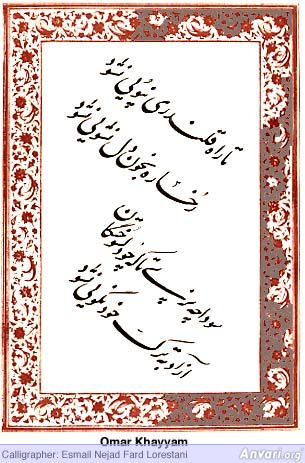 تا راه قلندری نپویی نشود
رخساره بخون دل نشویی نشود
سودا چه پزی تا که چو دلسوختگان
آزاد به ترک خود نگویی نشود
Omar Khayyam
Calligrapher: Esmail Nejad Fard Lorestani
Anvari.org